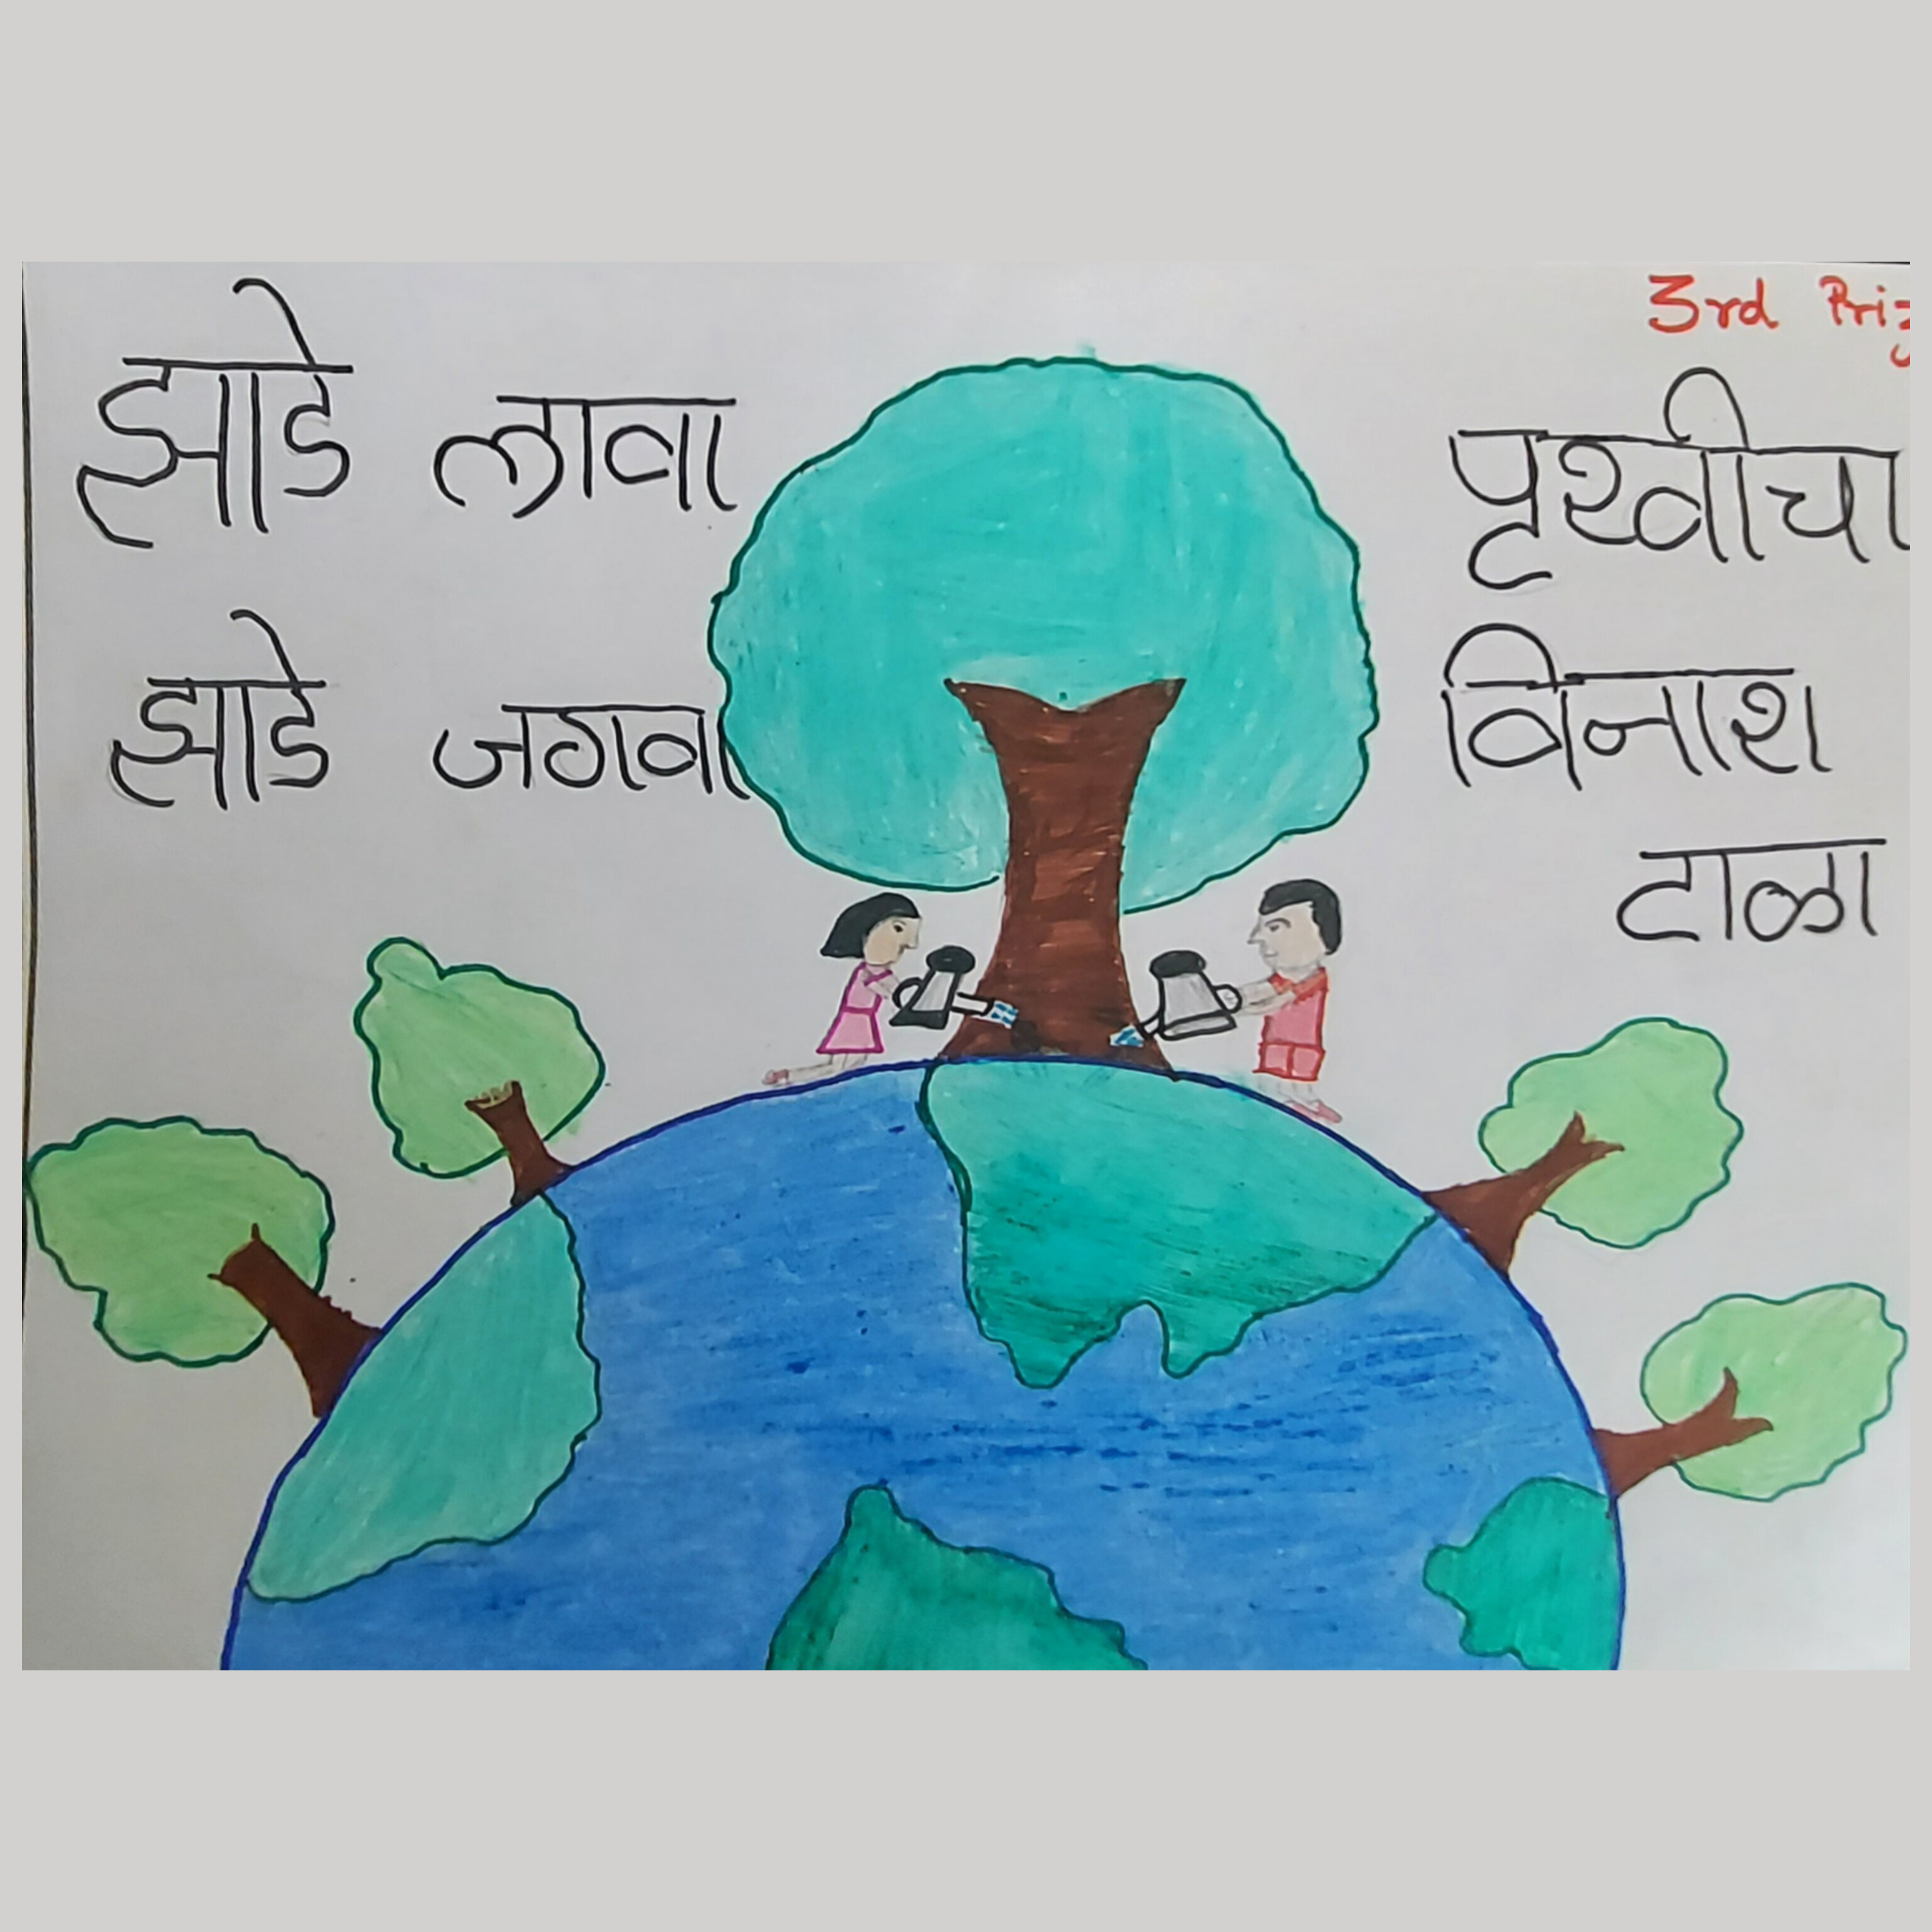 3rd Priz
झाडे लावा
झाडे जगवा
पृथ्वीचा
विनाश
टाळा